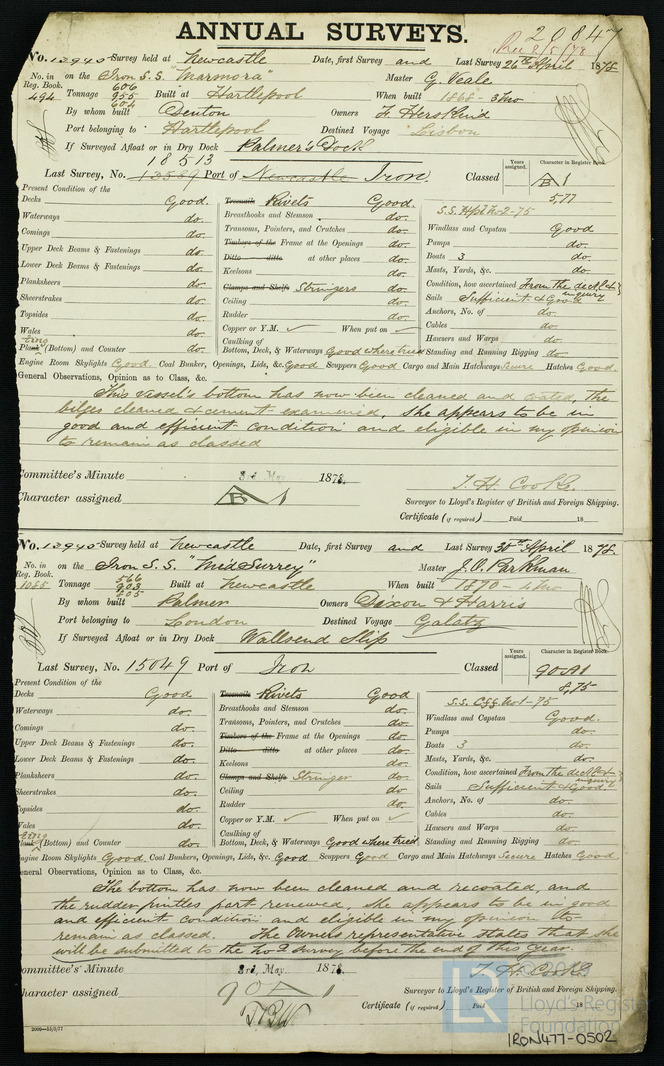 ANNUAL SURVEYS. 20847
Rec 8/5/78
No. 12940 Survey held at Newcastle Date, first Survey and Last Survey 26th April 1878
No. in Reg. Book. 494 on the Iron S.S. "Marmora" Master G. Veale
Tonnage 606 955 604 Built at Hartlepool When built 1868 - 3 mo
By whom built Denton Owners F. Herskind
Port belonging to Hartlepool Destined Voyage Lisbon
If Surveyed Afloat or in Dry Dock Palmer's Dock
18513
Last Survey, No. Port of Newcastle Iron. Classed Years assigned. Character in Register Book. A B 1
5,77
Present Condition of the
Decks Good. Treenails Rivets Good. S.S. Hpl No 2-75
Waterways do. Breasthooks and Stemson do. Windlass and Capstan Good
Comings do. Transoms, Pointers, and Crutches do. Pumps do.
Upper Deck Beams & Fastenings do. Timbers of the Frame at the Openings do. Boats 3 do.
Lower Deck Beams & Fastenings do. Ditto ditto at other places do. Masts, Yards, &c. do.
Planksheers do. Keelsons do. Condition, how ascertained From the deck & inquiry
Sheerstrakes do. Clamps and Shelfs Stringers do. Sails Sufficient & Good
Topsides do. Ceiling do. Anchors, No. of do.
Wales do. Rudder do. Cables do.
Copper or Y.M. ✓ When put on ✓ Hawsers and Warps do.
Plank (Bottom) and Counter do. Caulking of Bottom, Deck, & Waterways Good where tried Standing and Running Rigging do.
Engine Room Skylights Good. Coal Bunker, Openings, Lids, &c. Good Scuppers Good Cargo and Main Hatchways Secure Hatches Good.
General Observations, Opinion as to Class, &c.
This vessel's bottom has now been cleaned and coated, the
bilges cleaned & cement examined, She appears to be in
good and efficient condition and eligible in my opinion
to remain as classed
Committee's Minute 3rd May 1878. T. H. Cooke.
Character assigned A B 1 Surveyor to Lloyd's Register of British and Foreign Shipping.
Certificate (if required) Paid 18
No. 12940 Survey held at Newcastle Date, first Survey and Last Survey 30th April 1878.
No. in Reg. Book. 1055 on the Iron S.S. "Mid Surrey" Master J. O. Parkman
Tonnage 566 903 805 Built at Newcastle When built 1870
By whom built Palmer Owners Dixon & Harris
Port belonging to London Destined Voyage Galatz
If Surveyed Afloat or in Dry Dock Wallsend Slip
Last Survey, No. 15049 Port of Iron Classed Years assigned. Character in Register Book. 90 A1
8,75
Present Condition of the
Decks Good Treenails Rivets Good S.S. No 1-75
Waterways do. Breasthooks and Stemson do. Windlass and Capstan Good.
Comings do. Transoms, Pointers, and Crutches do. Pumps do.
Upper Deck Beams & Fastenings do. Timbers of the Frame at the Openings do. Boats 3 do.
Lower Deck Beams & Fastenings do. Ditto ditto at other places do. Masts, Yards, &c. do.
Planksheers do. Keelsons do. Condition, how ascertained From the deck & inquiry
Sheerstrakes do. Clamps and Shelfs Stringer do. Sails Sufficient & Good.
Topsides do. Ceiling do. Anchors, No. of do.
Wales do. Rudder do. Cables do.
Copper or Y.M. ✓ When put on ✓ Hawsers and Warps do.
Plank (Bottom) and Counter do. Caulking of Bottom, Deck, & Waterways Good where tried Standing and Running Rigging do.
Engine Room Skylights Good. Coal Bunkers, Openings, Lids, &c. Good Scuppers Good Cargo and Main Hatchways Secure Hatches Good
General Observations, Opinion as to Class, &c.
The bottom has now been cleaned and recoated, and
the rudder pintles part renewed, she appears to be in good
and efficient condition and eligible in my opinion to
remain as classed. The Owners representative states that she
will be submitted to the No 2 survey before the end of this year.
Committee's Minute 3rd May 1878. T. H. Cooke.
Character assigned 90 A 1 Surveyor to Lloyd's Register of British and Foreign Shipping.
Certificate (if required) Paid 18
© 2019 Lloyd's Register Foundation
IRON477-0502